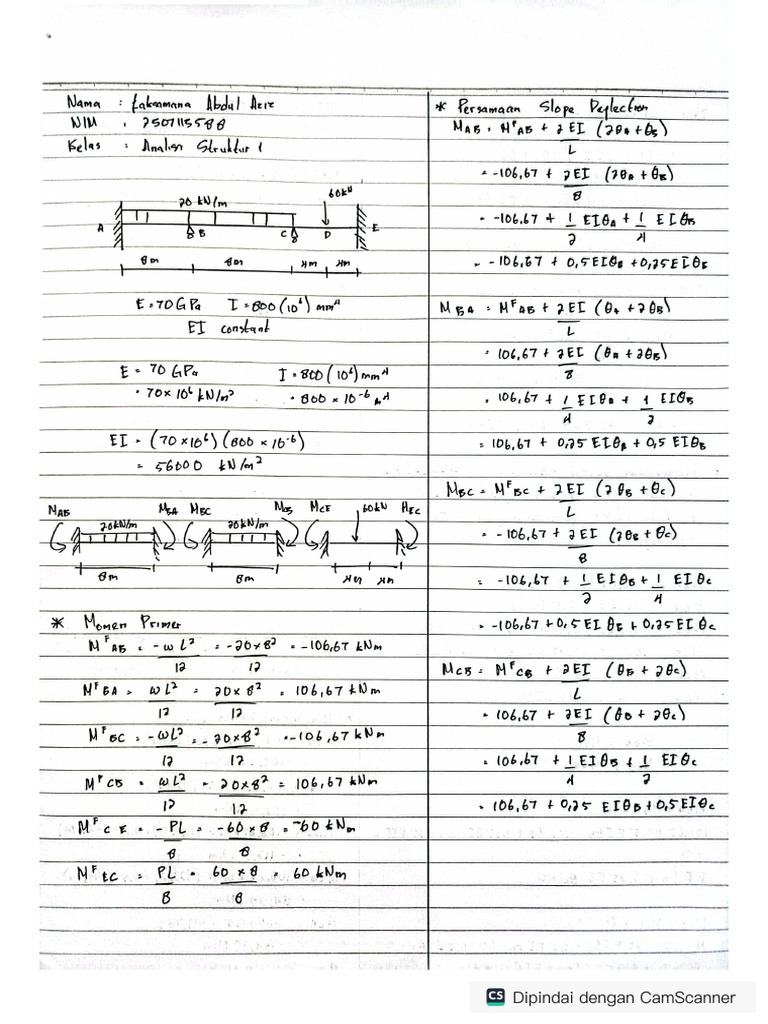 Nama : Laksamana Abdul Aziz
NIM : 2507115588
Kelas : Analisis Struktur 1
60 kN
20 kN/m
A B C D E
8m 8m 4m 4m
E = 70 GPa I = 800 (10⁶) mm⁴
EI constant
E = 70 GPa I = 800 (10⁶) mm⁴
= 70 × 10⁶ kN/m² = 800 × 10⁻⁶ m⁴
EI = (70 × 10⁶) (800 × 10⁻⁶)
= 56000 kN/m²
M_AB M_BA M_BC M_CB M_CE 60kN M_EC
20kN/m 20kN/m
8m 8m 4m 4m
* Momen Primer
M^F AB = -ωL²/12 = -20×8²/12 = -106,67 kNm
M^F BA = ωL²/12 = 20×8²/12 = 106,67 kNm
M^F BC = -ωL²/12 = -20×8²/12 = -106,67 kNm
M^F CB = ωL²/12 = 20×8²/12 = 106,67 kNm
M^F CE = -PL/8 = -60×8/8 = -60 kNm
M^F EC = PL/8 = 60×8/8 = 60 kNm
* Persamaan Slope Deflection
M_AB = M^F AB + 2EI/L (2θA + θB)
= -106,67 + 2EI/8 (2θA + θB)
= -106,67 + 1/2 EIθA + 1/4 EIθB
= -106,67 + 0,5EIθA + 0,25EIθB
M_BA = M^F AB + 2EI/L (θA + 2θB)
= 106,67 + 2EI/8 (θA + 2θB)
= 106,67 + 1/4 EIθA + 1/2 EIθB
= 106,67 + 0,25 EIθA + 0,5 EIθB
M_BC = M^F BC + 2EI/L (2θB + θC)
= -106,67 + 2EI/8 (2θB + θC)
= -106,67 + 1/2 EIθB + 1/4 EIθC
= -106,67 + 0,5 EIθB + 0,25 EIθC
M_CB = M^F CB + 2EI/L (θB + 2θC)
= 106,67 + 2EI/8 (θB + 2θC)
= 106,67 + 1/4 EIθB + 1/2 EIθC
= 106,67 + 0,25 EIθB + 0,5EIθC
CS Dipindai dengan CamScanner